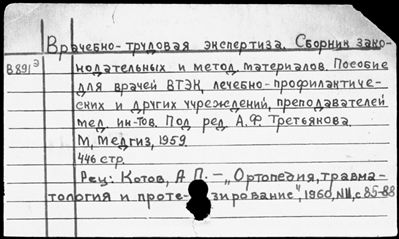 Врачебно-трудовая экспертиза. Сборник зако-
В891э нодательных и метод. материалов. Пособие
для врачей ВТЭК, лечебно-профилактиче-
ских и других учреждений, преподавателей
мед. ин-тов. Под ред. А.Ф. Третьякова.
М, Медгиз, 1959.
446 стр.
Рец: Котов, А.П. – „Ортопедия, травма-
тология и проте- зирование", 1960, с 85-88